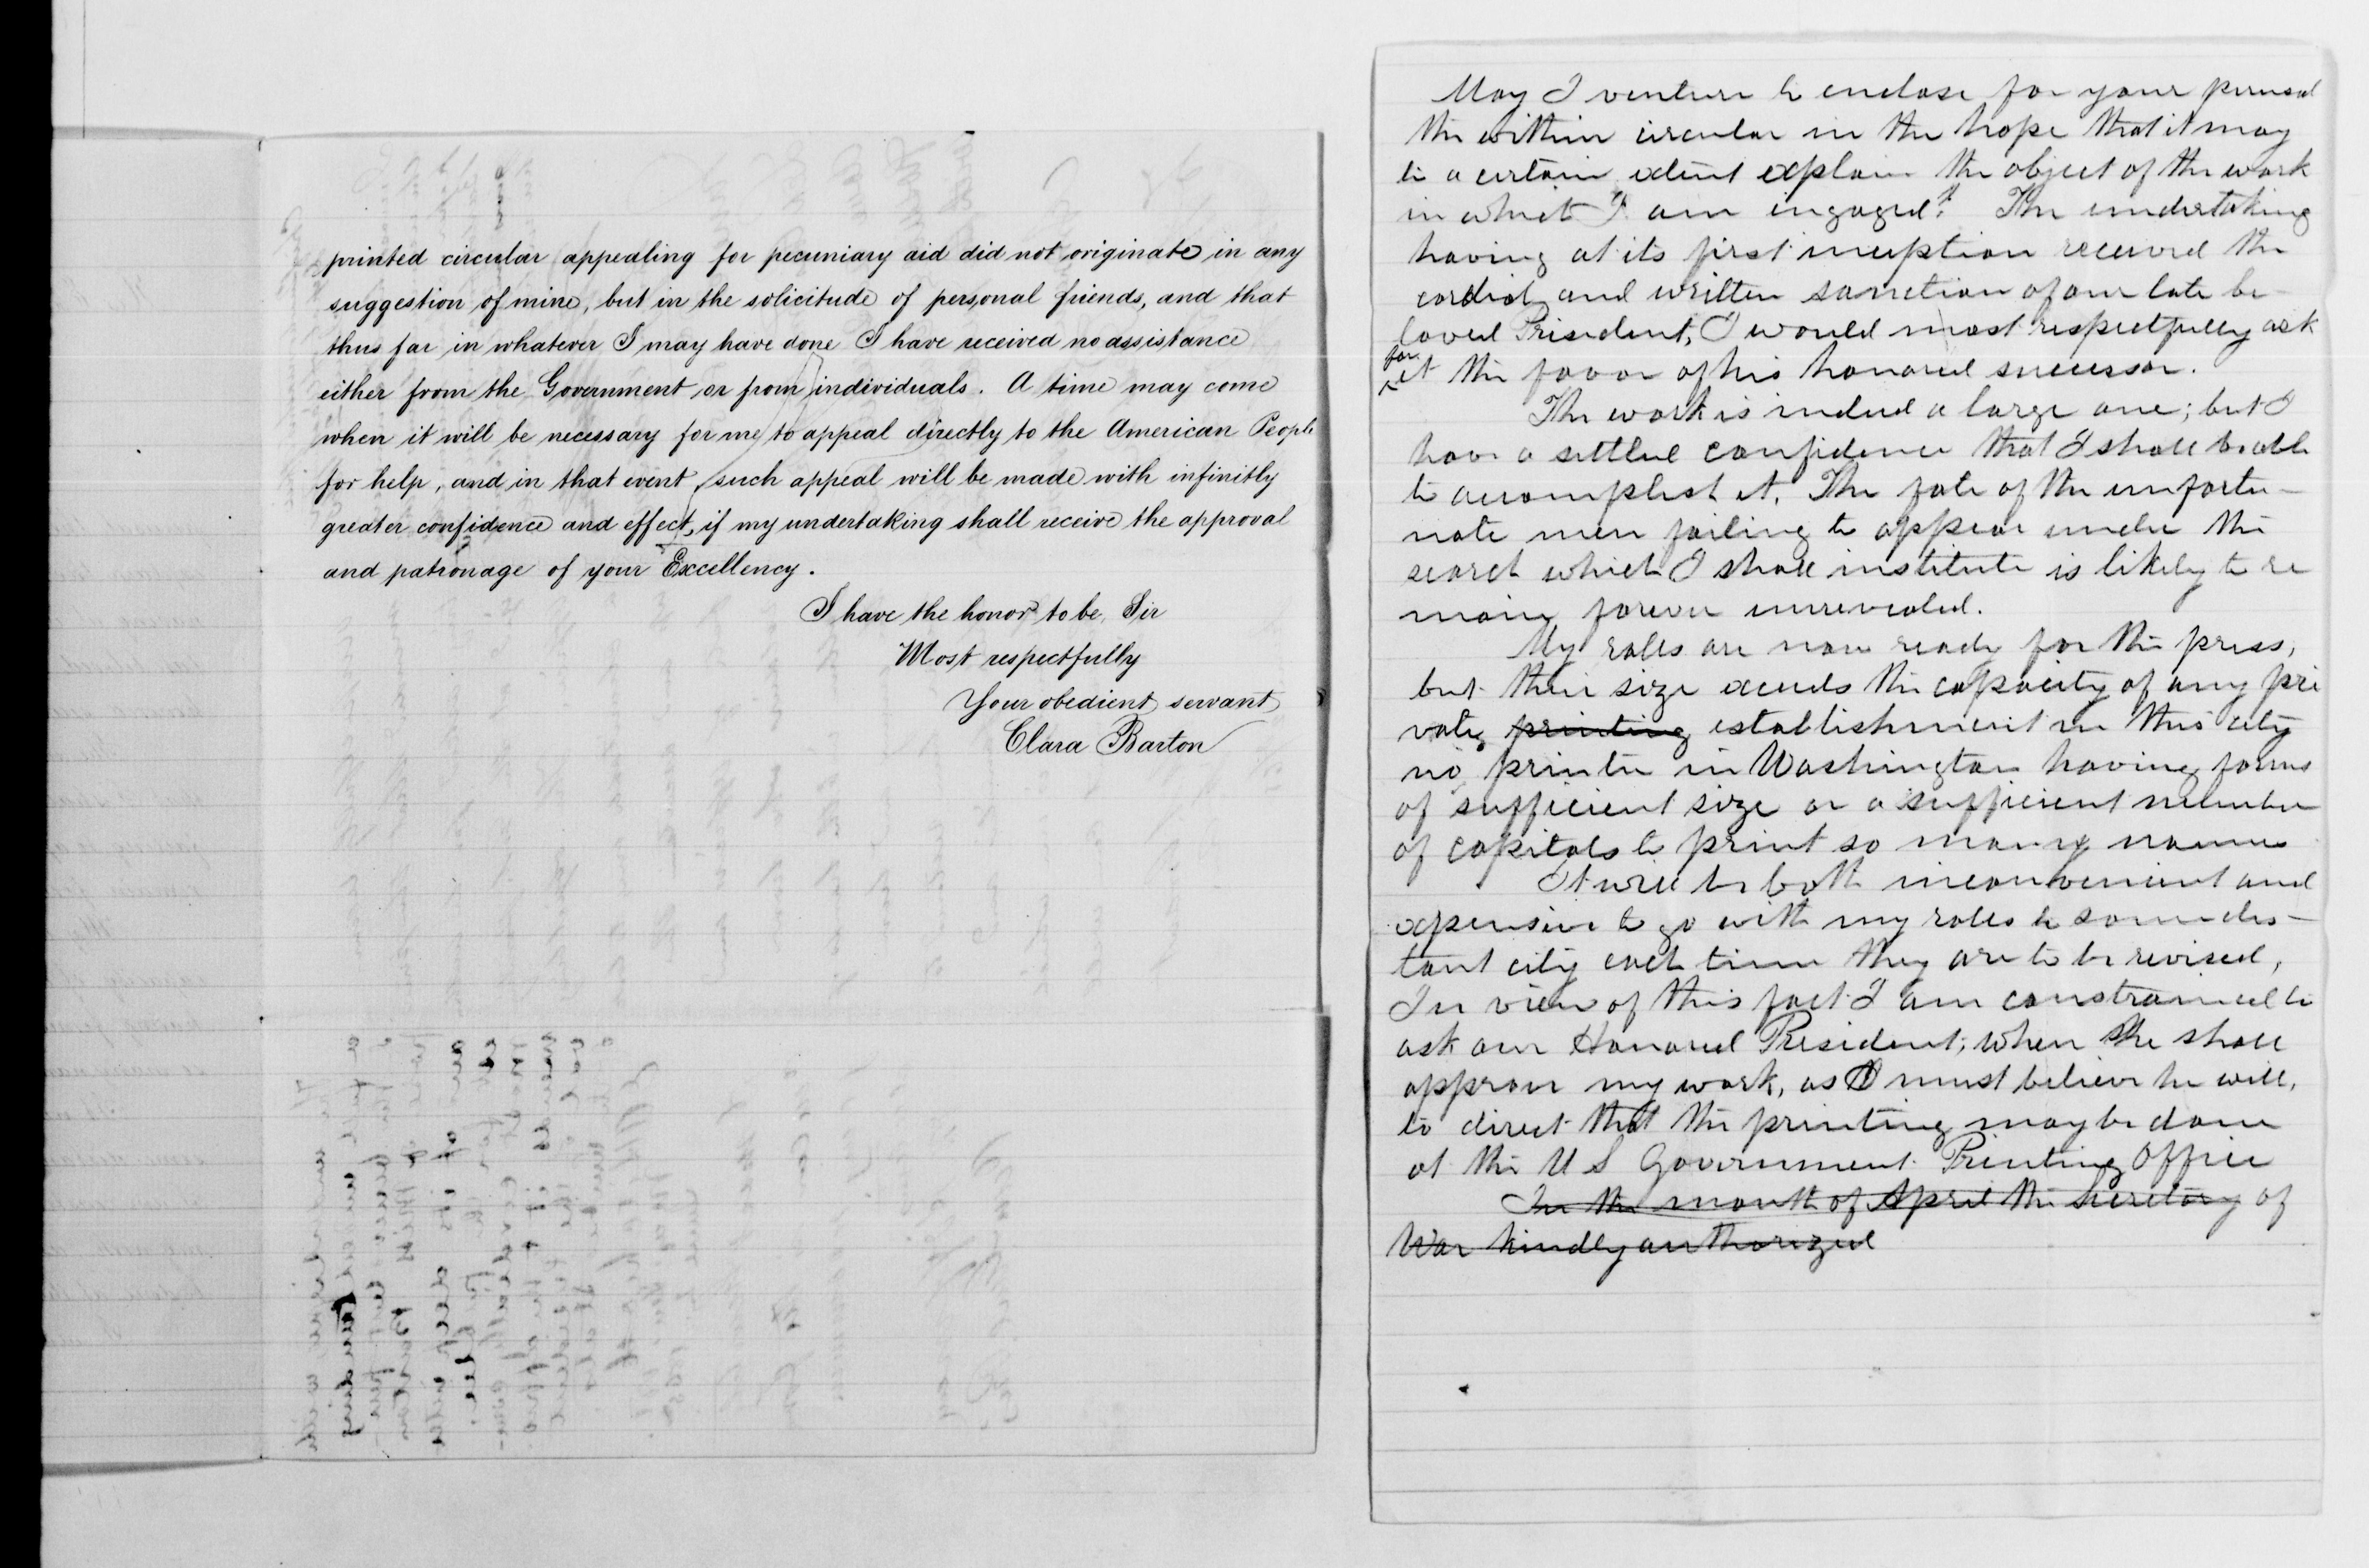 printed circular appealing for pecuniary aid did not originate in any
suggestion of mine, but in the solicitude of personal friends, and that
thus far in whatever I may have done I have received no assistance
either from the Government or from individuals. A time may come
when it will be necessary for me to appeal directly to the American People
for help, and in that event, such appeal will be made with infinitly
greater confidence and effect, if my undertaking shall receive the approval
and patronage of your Excellency.
I have the honor to be, Sir
Most respectfully
Your obedient servant
Clara Barton
May I venture to enclose for your perusal
the within circular in the hope that it may
to a certain extent explain the object of the work
in which I am engaged? The undertaking
having at its first inception received the
cordial and written sanction of our late be-
loved President, I would most respectfully ask
for it the favor of his honored successor.
The work is indeed a large one; but I
have a settled confidence that I shall be able
to accomplish it. The fate of the unfortu-
nate men failing to appear under the
search which I shall institute is likely to re
main forever unrevealed.
My rolls are now ready for the press,
but their size exceeds the capacity of any pri
vate printing establishment in this city
no printer in Washington having forms
of sufficient size or a sufficient number
of capitals to print so many names
It will be both inconvenient and
expensive to go with my rolls to some dis-
tant city each time they are to be revised,
In view of this fact I am constrained to
ask our Honored President, when he shall
approve my work, as I must believe he will,
to direct that the printing may be done
at the U S Government Printing Office
In the month of April the Secretary of
War kindly authorized